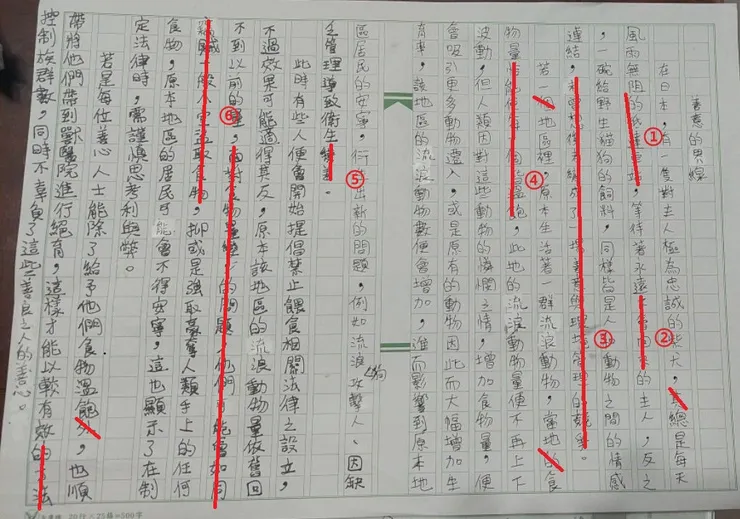 善意的界線
在日本,有一隻對主人極為忠誠的柴犬,牠總是每天
風雨無阻的,等待著永遠的主人,反之
,一碗給野生貓狗的飼料,同樣皆是人和動物之間的情感
連結,
若一個地區裡,原本生活著一群流浪動物,當地的食
物量,此地的流浪動物量便不再上下
波動,但人類因對這些動物的憐憫之情,增加食物量,便
會吸引更多動物遷入,或是原有的動物因此而大幅增加生
育率,該地區的流浪動物數便會增加,進而影響到原本地
區居民的安寧,衍生出新的問題,例如流浪狗攻擊人、因缺
乏管理導致衛生
此時有些人便會開始提倡禁止餵食相關法律之設立,
不過效果可能適得其反,原本該地區的流浪動物量依舊回
不到以前的量,面對食物量變少的問題,他們可能會如同
竊賊一般入室盜取食物,抑或是強取豪奪人類手上的任何
食物,原本地區的居民可能會不得安寧,這也顯示了在制
定法律時,需謹慎思考利與弊。
若是每位善心人士能除了給予他們食物溫飽外,也順
帶將他們帶到獸醫院進行絕育,這樣才能以較有效的方法
控制族群數,同時不辜負了這些善良之人的善心。
①
②
③
④
⑤
⑥
20行×25格=500字